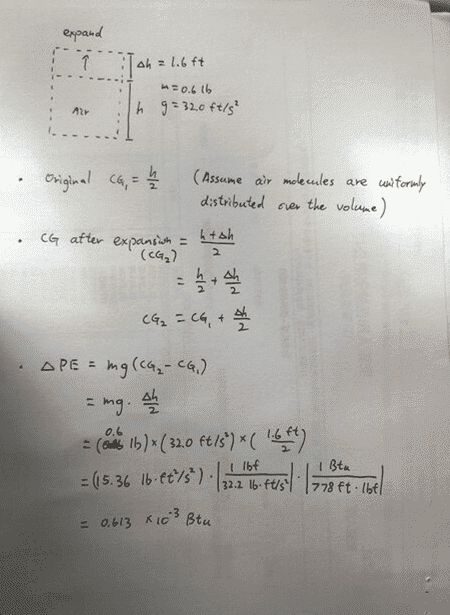 expand
↑ Δh = 1.6 ft
m = 0.6 lb
Air h g = 32.0 ft/s²
• Original CG₁ = h/2 (Assume air molecules are uniformly
distributed over the volume)
• CG after expansion = (h+Δh)/2
(CG₂)
= h/2 + Δh/2
CG₂ = CG₁ + Δh/2
• ΔPE = mg(CG₂ - CG₁)
= mg · Δh/2
= (0.6 lb) × (32.0 ft/s²) × (1.6 ft/2)
= (15.36 lb·ft²/s²) · |1 lbf/32.2 lb·ft/s²| · |1 Btu/778 ft·lbf|
= 0.613 × 10⁻³ Btu